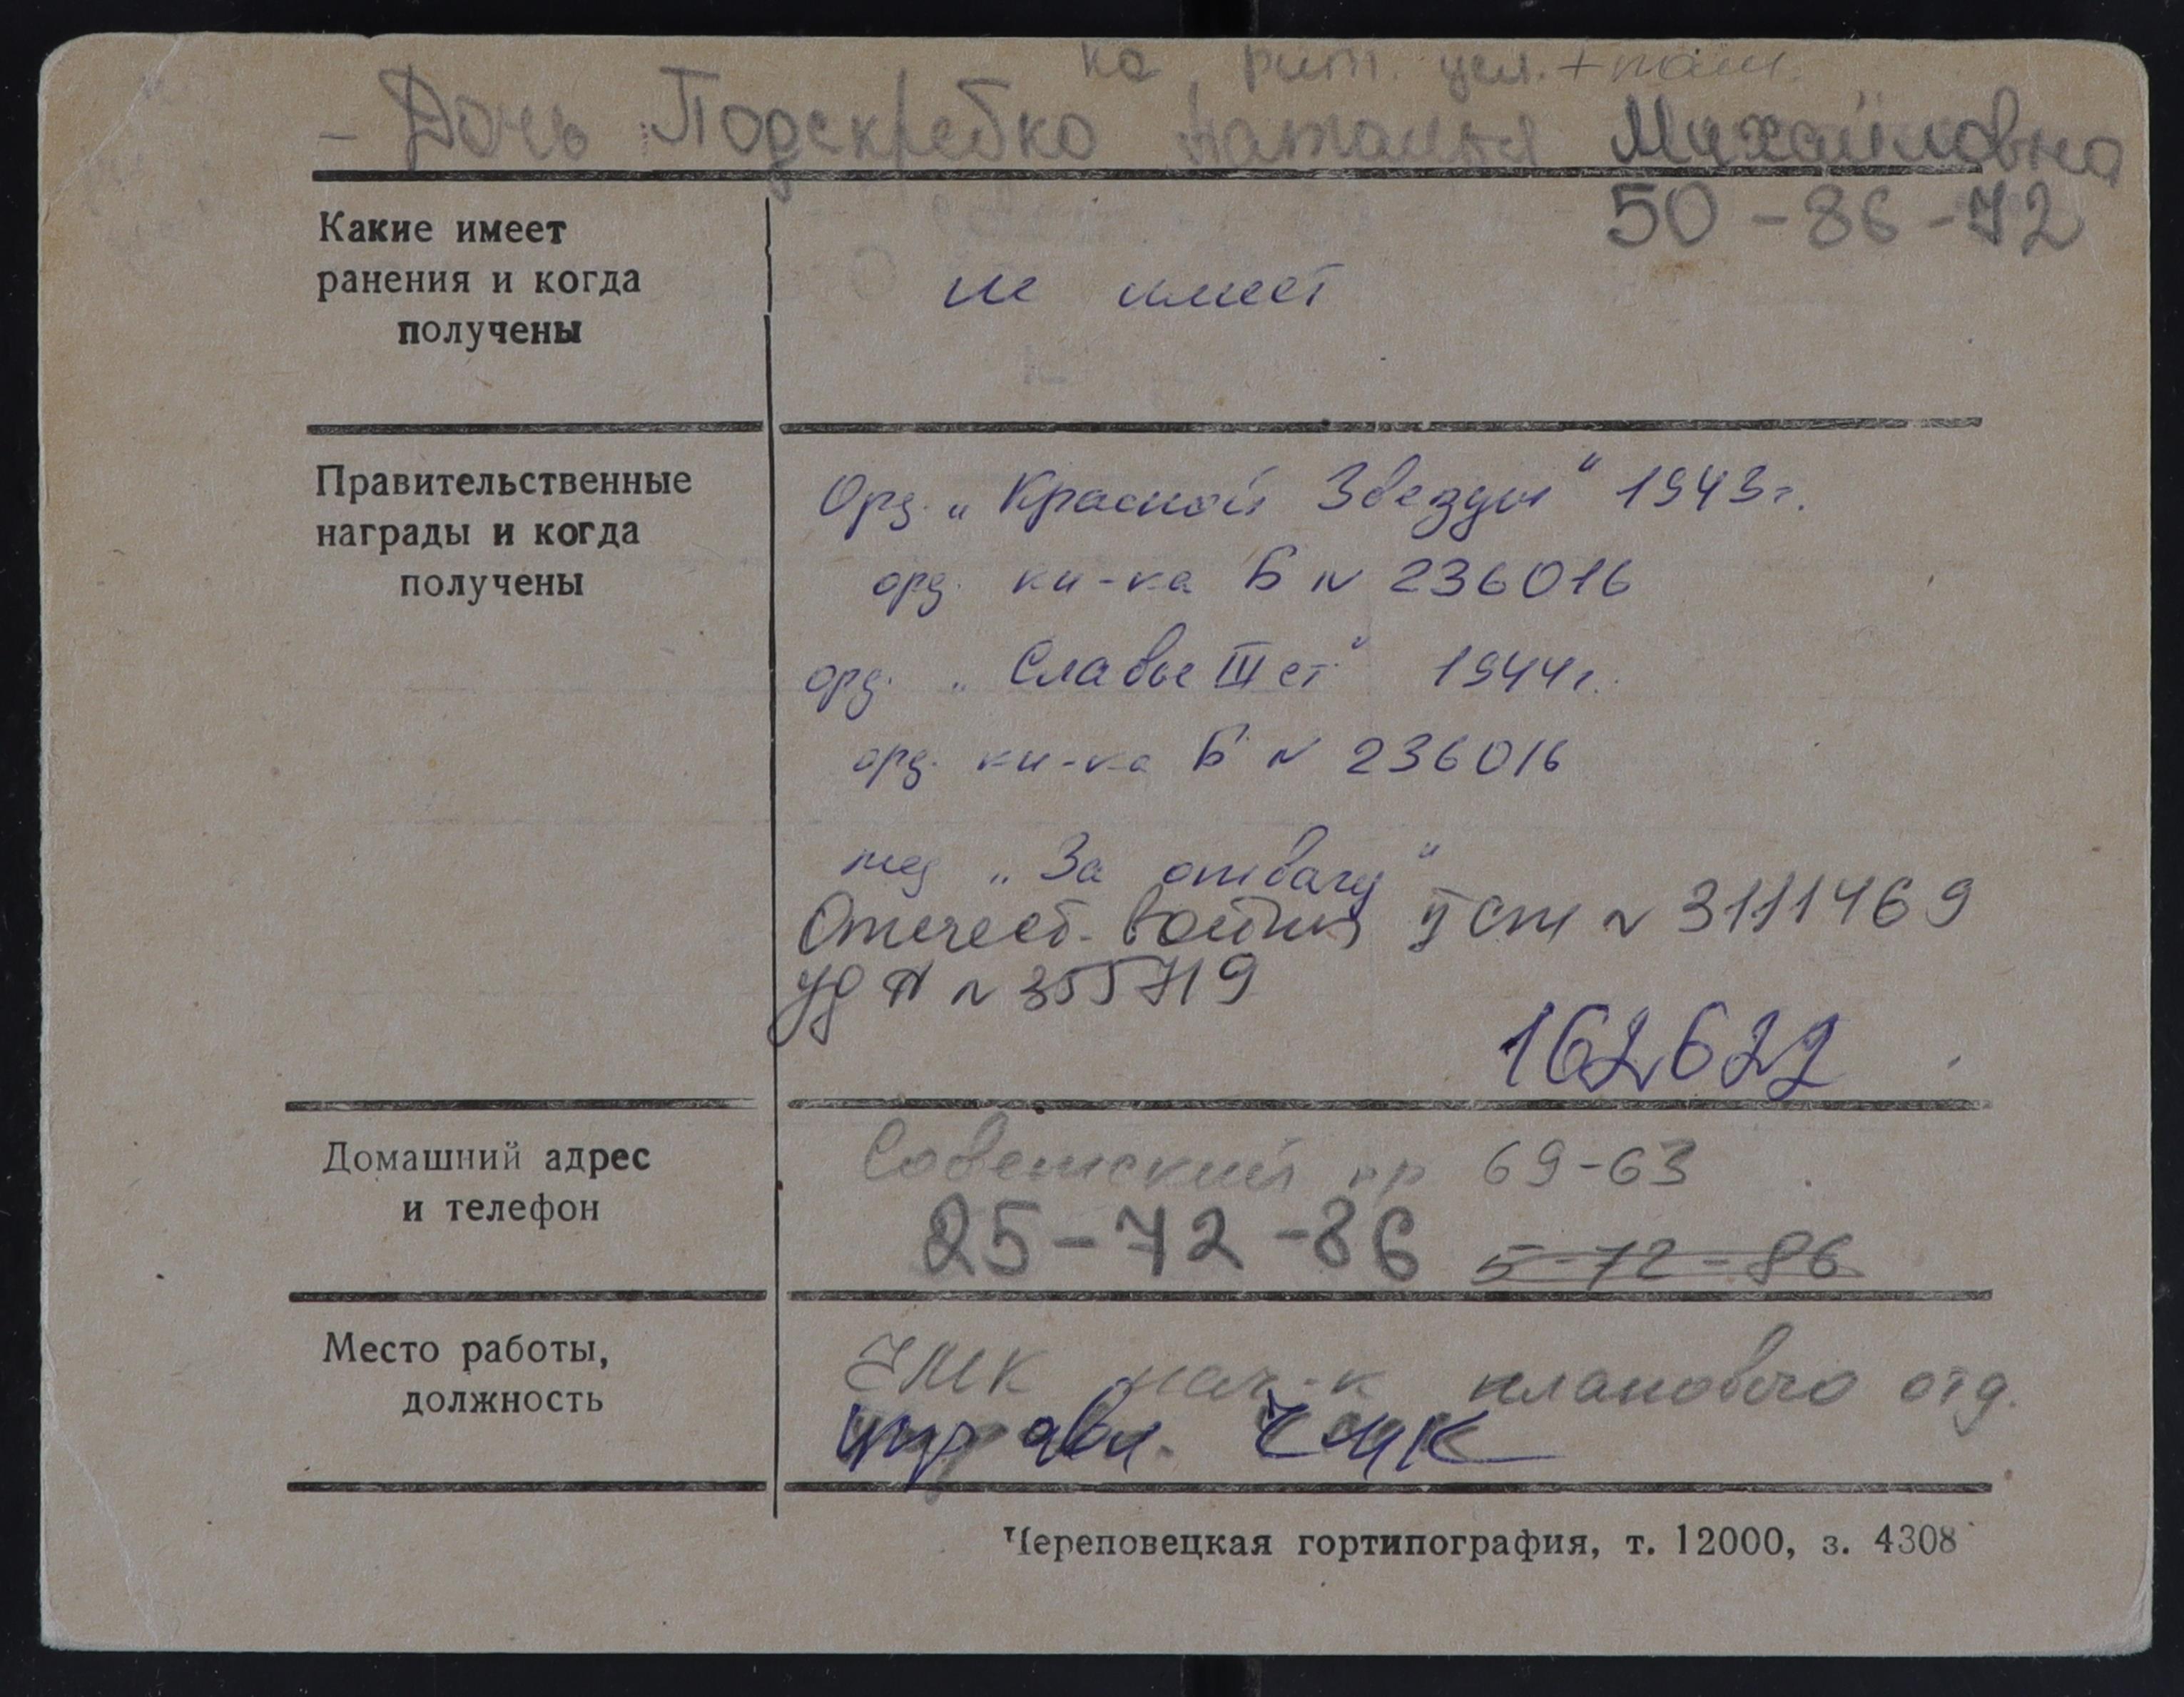 на рит. усл. + пам.
- Дочь Подскребко Наталья Михайловна
50-86-72
Какие имеет
ранения и когда
получены
не имеет
Правительственные
награды и когда
получены
Орд. „Красной Звезды“ 1943г.
орд. кн-ка Б N 236016
орд. „Славы III ст“ 1944г.
орд. кн-ка Б N 236016
мед „За отвагу“
Отечест. войны II ст N 3111469
уд А N 355719
162622
Домашний адрес
и телефон
Советский пр 69-63
25-72-86 5-72-86
Место работы,
должность
ЧМК нач-к планового отд.
управл. ЧМК
Череповецкая гортипография, т. 12000, з. 4308